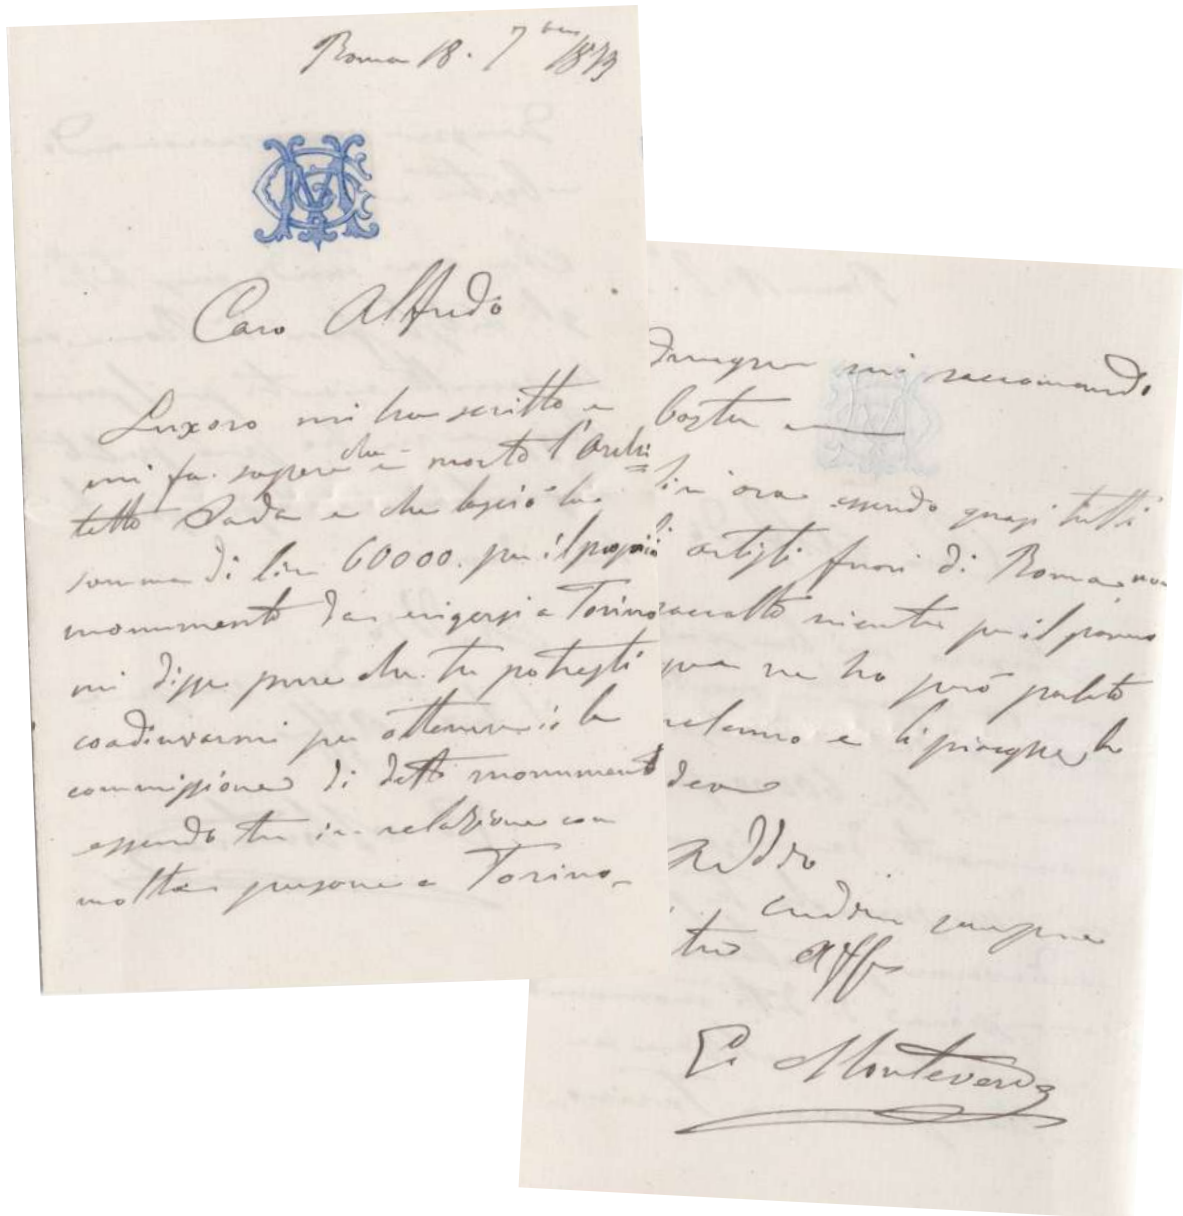 Roma 18. 7bre 1873
GM
Caro Alfredo
Luxoro mi ha scritto e
mi fa sapere che è morto l'Archi=
tetto Sada e che lasciò la
somma di lire 60000. per il proprio
monumento da erigersi a Torino
mi disse pure che tu potresti
coadiuvarmi per ottenere la
commissione di detto monumento
essendo tu in relazione con
molte persone a Torino,
dunque mi raccomando
basta
fin ora essendo quasi tutti
artisti fuori di Roma non
raccolto niente per il
ne ho però parlato
e li
Addio
credimi sempre
tuo Aff
G. Monteverde